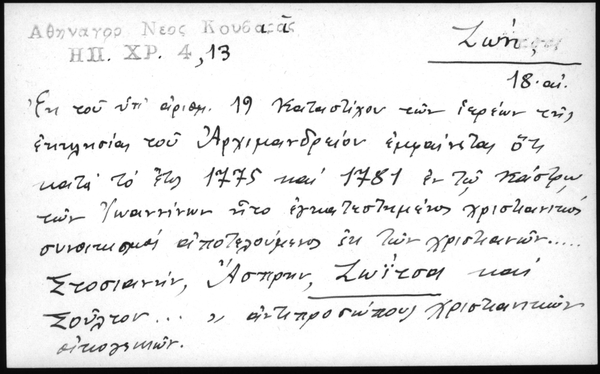 Αθηναγορ Νεος Κουβαρᾶς
ΗΠ. ΧΡ. 4, 13
Ζωή,
18. αἰ.
Ἐκ τοῦ ὑπ' ἀριθμ. 19 Καταστίχου τῶν ἱερέων τῆς
ἐκκλησίας τοῦ Ἀρχιμανδρείου ἐμφαίνεται ὅτι
κατά τό ἔτος 1775 καί 1781 ἐν τῷ Κάστρῳ
τῶν Ἰωαννίνων ἦτο ἐγκατεστημένος χριστιανικός
συνοικισμός ἀποτελούμενος ἐκ τῶν χριστιανῶν.....
Στοσιανήν, Ἄσπρην, Ζωΐτσα καί
Σοῦλτον... " ἀντιπροσώπους χριστιανικῶν
οἰκογενειῶν.